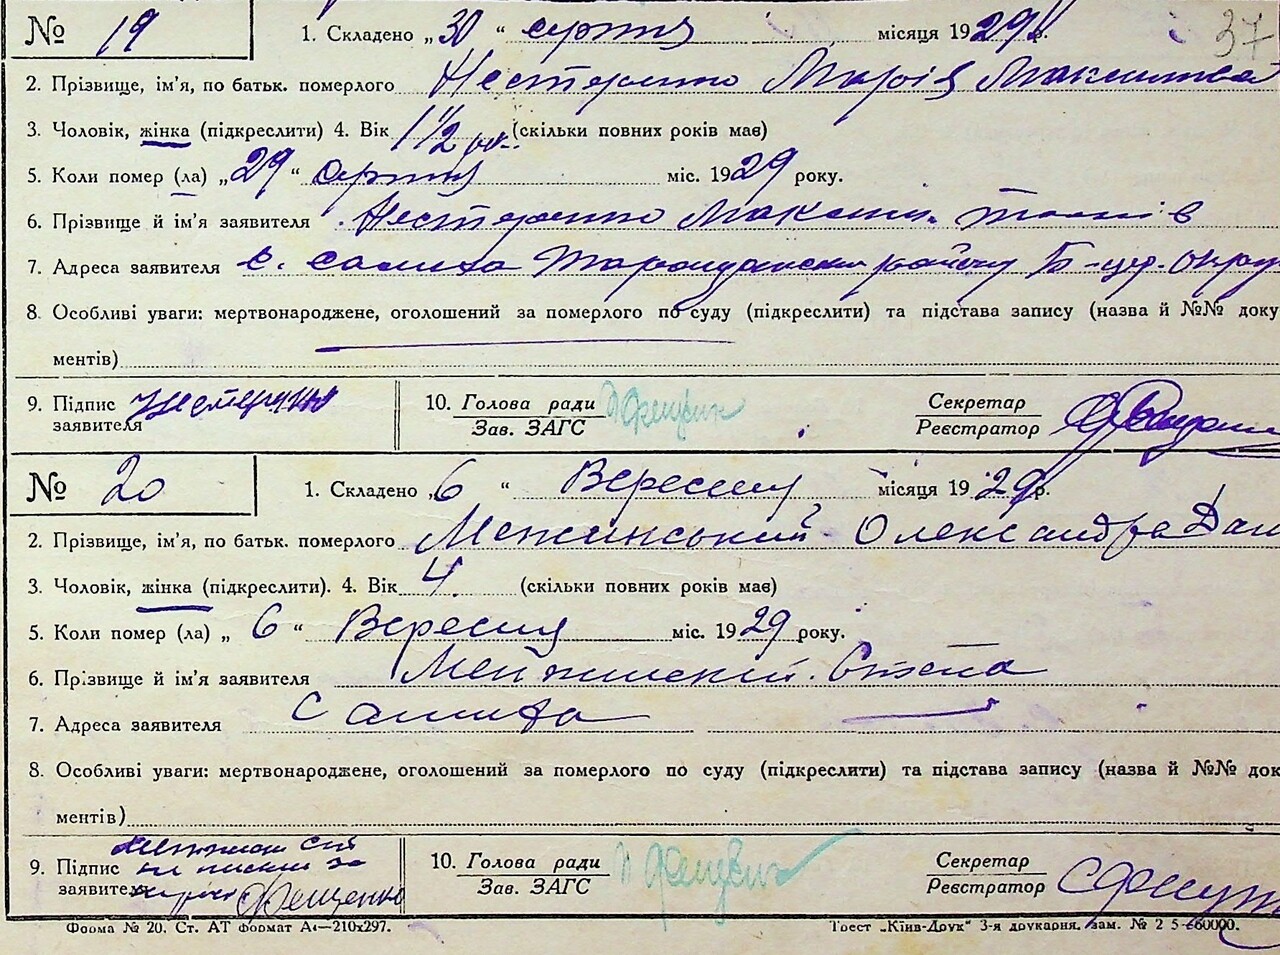 37
№ 19 1. Складено „30“ серпня місяця 1929 р.
2. Прізвище, ім'я, по батьк. померлого Нестеренко Марія Максимова
3. Чоловік, жінка (підкреслити) 4. Вік 1 1/2 (скільки повних років має)
5. Коли помер (ла) „29“ серпня міс. 1929 року.
6. Прізвище й ім'я заявителя Нестеренко Максим
7. Адреса заявителя с. Салиха Таращанськ району Б-цер. округ
8. Особливі уваги: мертвонароджене, оголошений за померлого по суду (підкреслити) та підстава запису (назва й №№ доку
ментів)
9. Підпис Нестеренко 10. Голова ради Секретар
заявителя Зав. ЗАГС Реєстратор
№ 20 1. Складено „6“ Вересня місяця 1929 р.
2. Прізвище, ім'я, по батьк. померлого Межинський Олександра Дан
3. Чоловік, жінка (підкреслити). 4. Вік 4. (скільки повних років має)
5. Коли помер (ла) „6“ Вересня міс. 1929 року.
6. Прізвище й ім'я заявителя Степа
7. Адреса заявителя Салиха
8. Особливі уваги: мертвонароджене, оголошений за померлого по суду (підкреслити) та підстава запису (назва й №№ док
ментів)
9. Підпис 10. Голова ради Секретар
заявителя Зав. ЗАГС Реєстратор
Форма № 20. Ст. АТ формат А4—210х297. Трест „Київ-Друк“ 3-я друкарня. зам. № 2 5-60000.